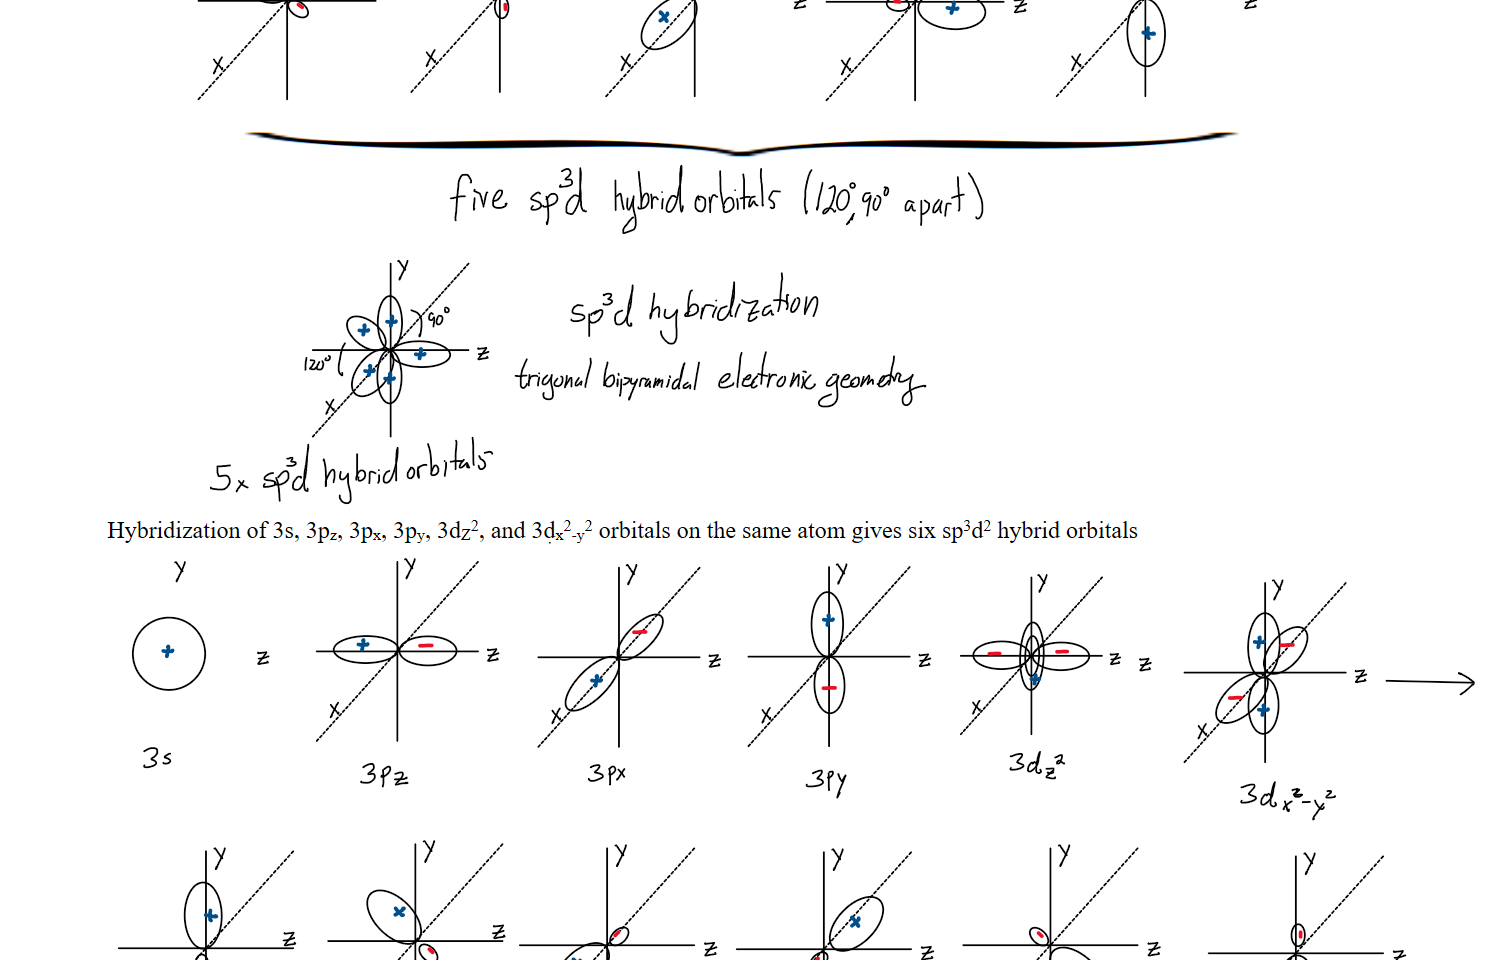 z z z
x x x x x
five sp³d hybrid orbitals (120°, 90° apart)
y
90°
sp³d hybridization
z
120°
trigonal bipyramidal electronic geometry
x
5x sp³d hybrid orbitals
Hybridization of 3s, 3p_z, 3p_x, 3p_y, 3d_z², and 3d_x²-y² orbitals on the same atom gives six sp³d² hybrid orbitals
y y y y y y
+ + − − + − − + −
z z z z z z z
+ − + − +
x x x x x
3s 3pz 3px 3py 3dz² 3dx²-y²
y y y y y y
z z z z z z